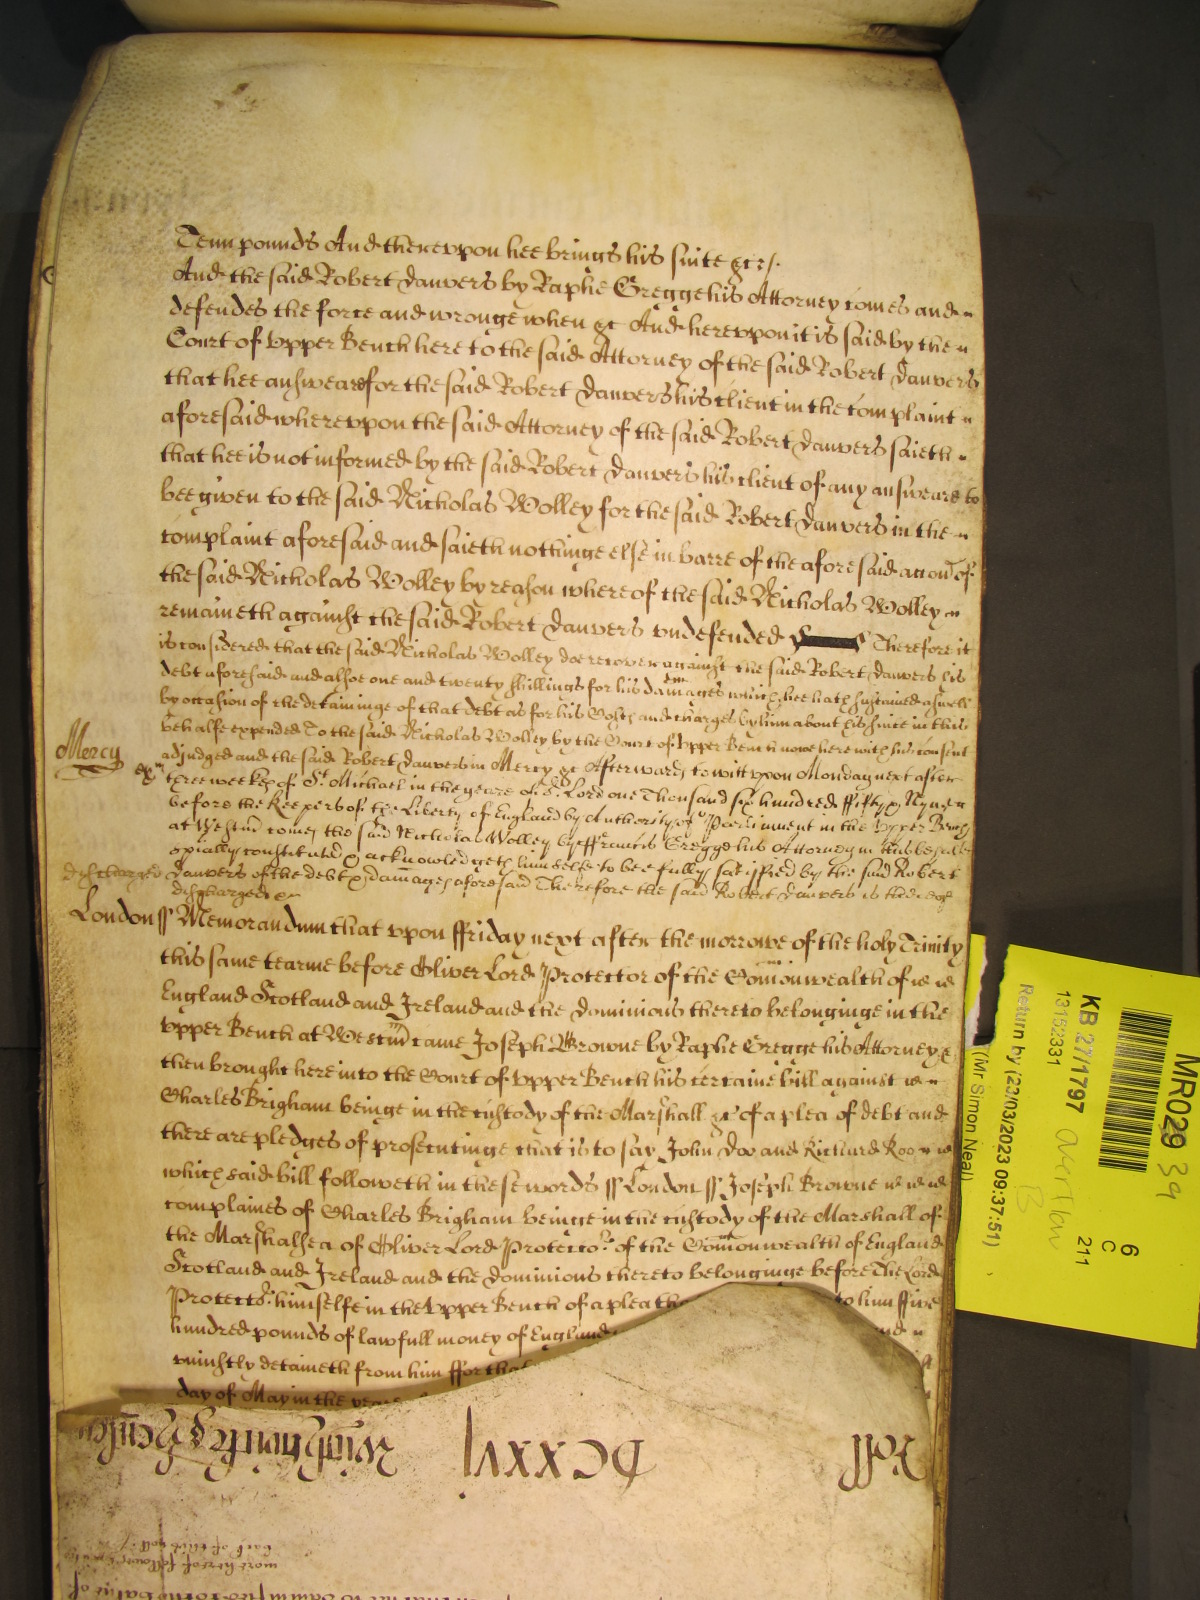 Tenn pounds And therevpon hee brings his suite &c
And the said Robert Danvers by Raphe Gregge his Attorney comes and
defendes the force and wronge when &c And herevpon it is said by the
Court of vpper Bench here to the said Attorney of the said Robert Danvers
that hee answeare for the said Robert Danvers his client in the complaint
aforesaid wherevpon the said Attorney of the said Robert Danvers saieth
that hee is not informed by the said Robert Danvers his client of any answeare to
bee given to the said Nicholas Wolley for the said Robert Danvers in the
complaint aforesaid and saieth nothinge else in barre of the aforesaid accon of
the said Nicholas Wolley by reason whereof the said Nicholas Wolley
remaineth against the said Robert Danvers vndefended Therefore it
is considered that the said Nicholas Wolley doe recover against the said Robert Danvers his
debt aforesaid and alsoe one and twenty shillings for his damages which hee hath sustained aswell
by occasion of the detaininge of that debt as for his Costs and charges by him about his suite in this
behalfe expended To the said Nicholas Wolley by the Court of vpper Bench nowe here with his consent
Mercy
adjudged and the said Robert Danvers in Mercy &c Afterwards to witt vpon Monday next after
three weekes of St Michaell in the yeare of or Lord one Thousand six hundred ffifty & Nyne
before the Keepers of the Liberty of England by Authority of Parliament in the vpper Bench
at Westm comes the said Nicholas Wolley by ffrancis Gregge his Attorney in this behalfe
spially constituted & acknowledgeth himselfe to bee fully satisfied by the said Robert
discharged
Danvers of the debt & damages aforesaid Therefore the said Robert Danvers is thereof
discharged &c
London ss Memorandum that vpon ffriday next after the morrowe of the holy Trinity
this same tearme before Oliver Lord Protector of the Comonwealth of
England Scotland and Ireland and the dominions thereto belonginge in the
vpper Bench at Westm came Joseph Browne by Raphe Gregge his Attorney &
then brought here into the Court of vpper Bench his certaine bill against
Charles Brigham beinge in the custody of the Marshall &c of a plea of debt and
there are pledges of prosecutinge that is to say John Doo and Richard Roo
which said bill followeth in these words ss London ss Joseph Browne
complaines of Charles Brigham beinge in the custody of the Marshall of
the Marshalsea of Oliver Lord Protector of the Comonwealth of England
Scotland and Ireland and the dominions thereto belonginge before The Lord
Protector himselfe in the vpper Bench of a plea to him ffive
hundred pounds of lawfull money of England
vniustly detaineth from him ffor that
day of May in the yeare
Roll DCXXVI
more hereof followeth
back of this roll
MR029 39
6
C
211
KB 27/1797
13152331
Return by (23/03/2023 09:37:51)
(Mr Simon Neal)